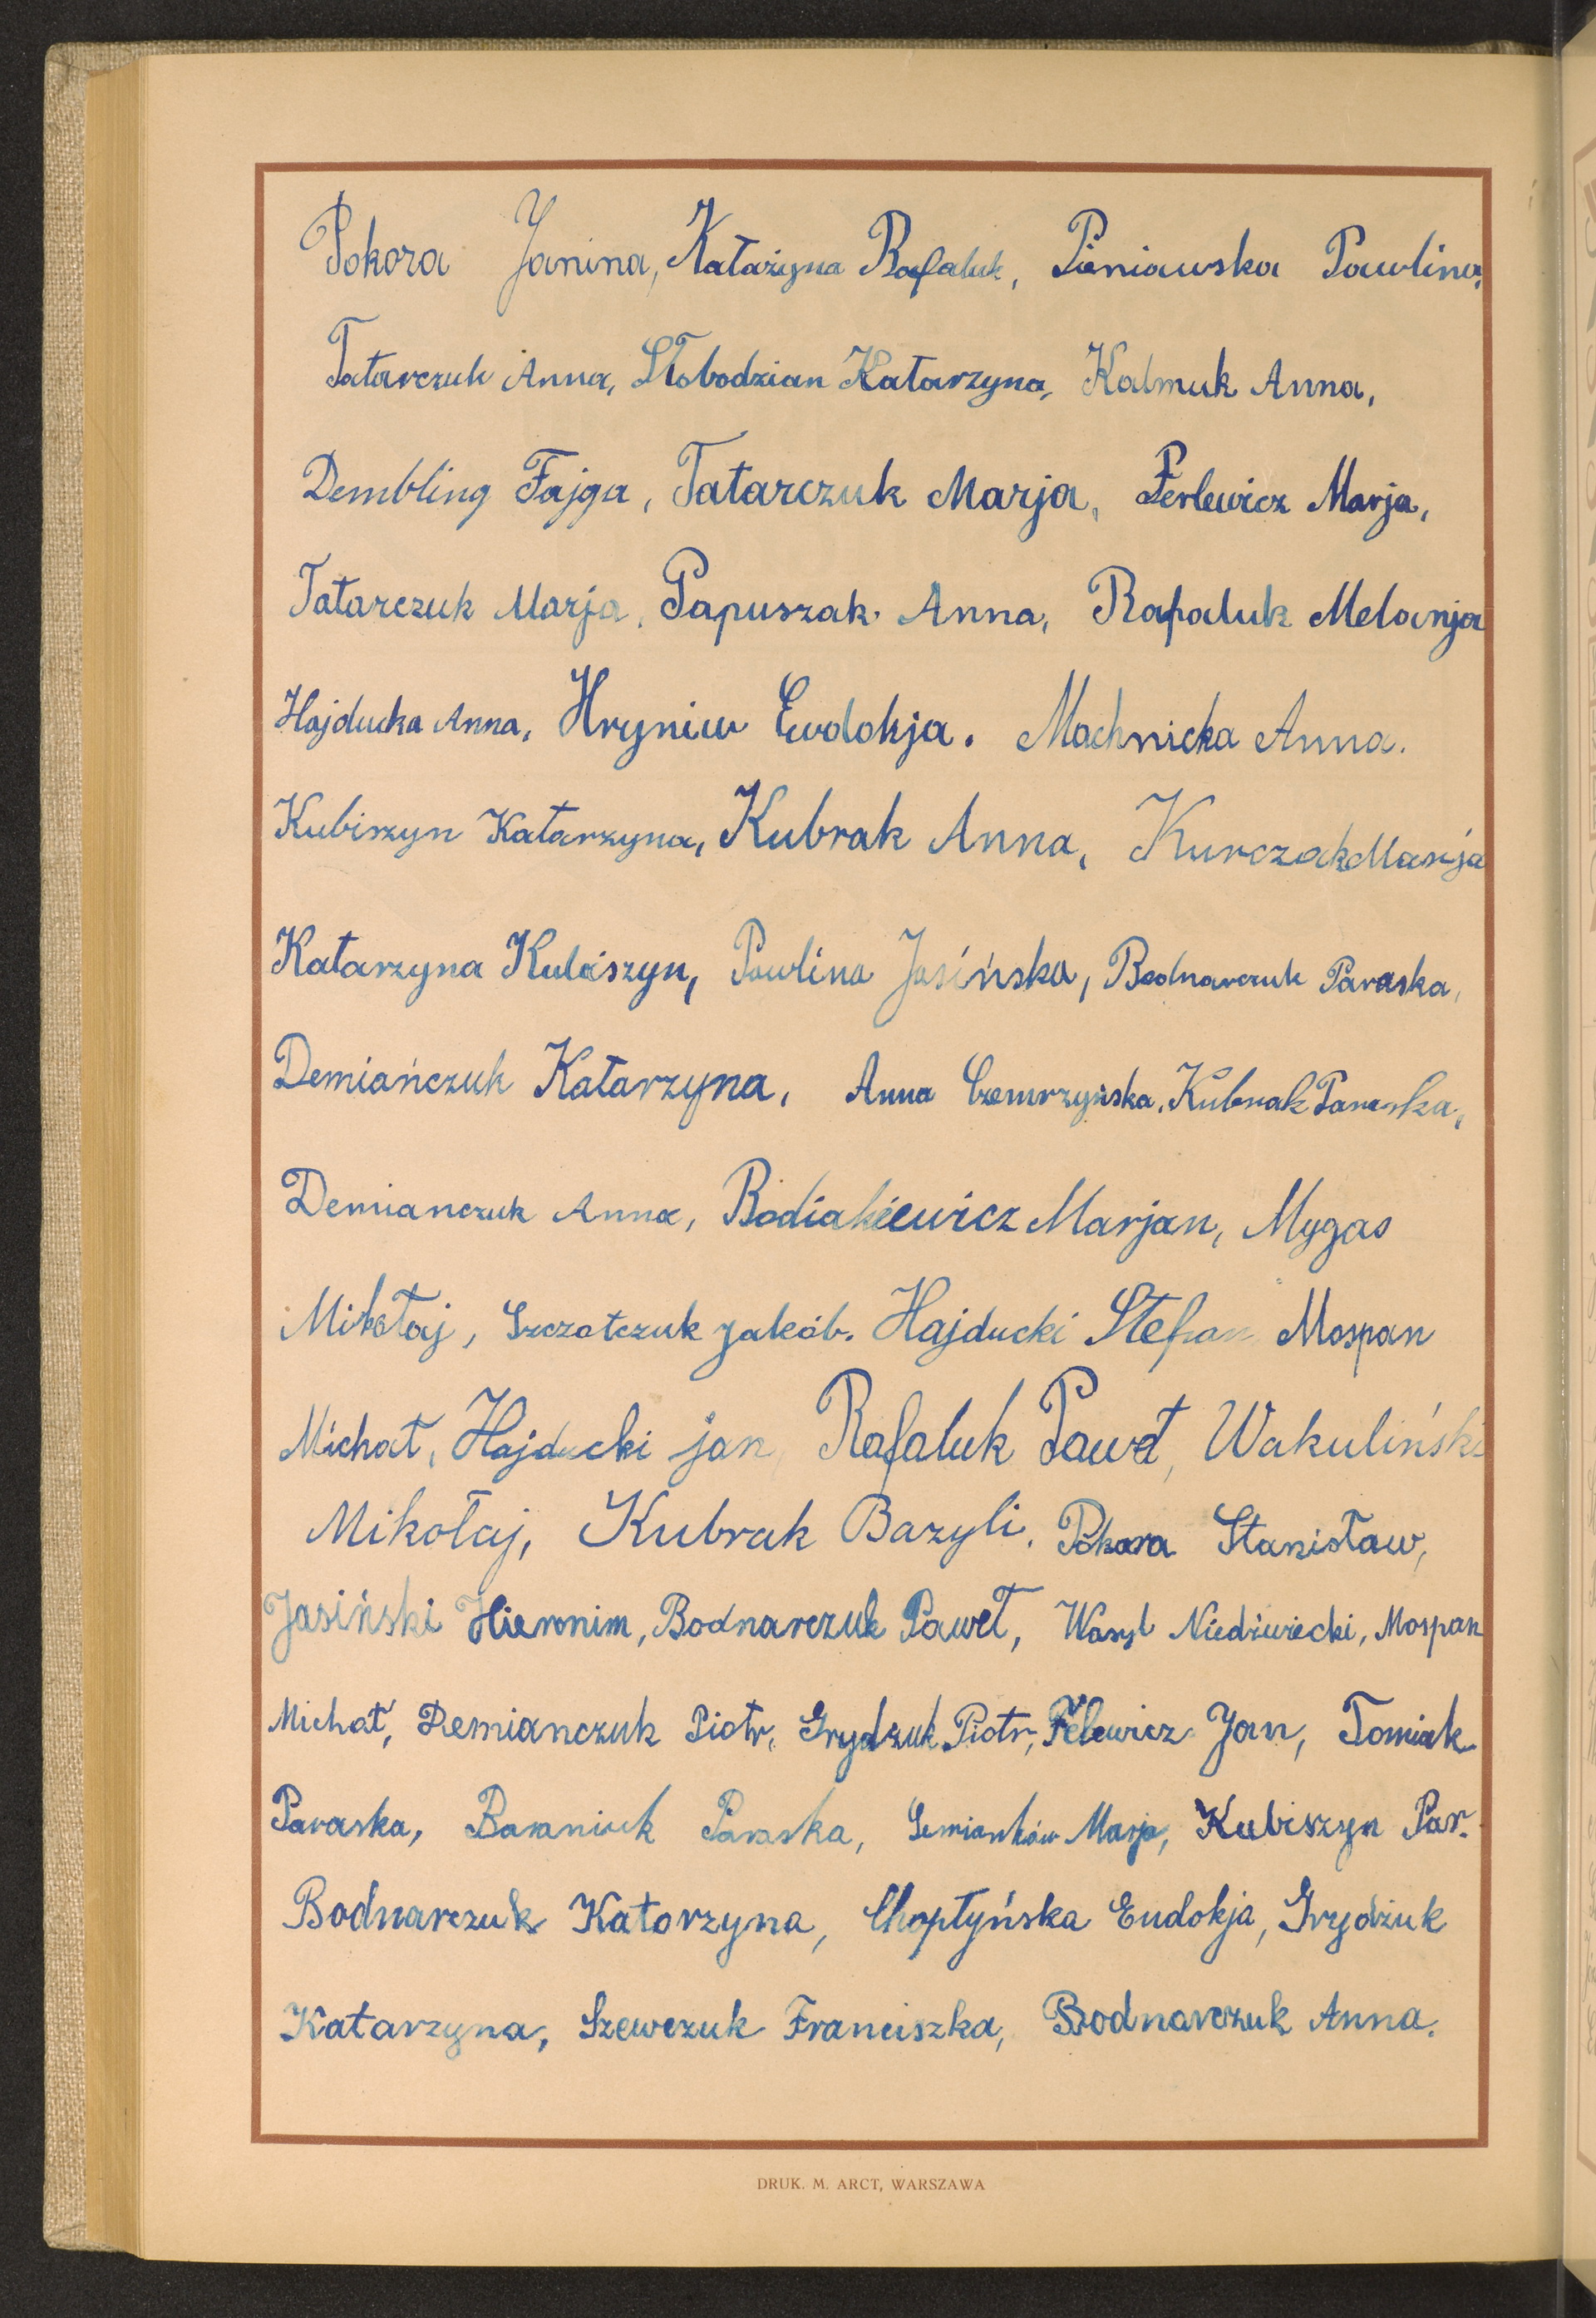 Pokora Janina, Katażyna Rafaluk, Pieniawska Pawlina,
Tatarczuk Anna, Słobodzian Katarzyna, Kalmuk Anna,
Dembling Fajga, Tatarczuk Marja, Ferlewicz Marja,
Tatarczuk Marja, Papuszak Anna, Rafaluk Melanja
Hajducka Anna, Hryniw Ewdokja. Machnicka Anna.
Kubiszyn Katarzyna, Kubrak Anna, Kurczak Marija
Katarzyna Kubiszyn, Pawlina Jasińska, Bodnarczuk Paraska,
Demiańczuk Katarzyna, Anna Czemrzyńska, Kubrak Paraska,
Demianczuk Anna, Bodiakiewicz Marjan, Mygas
Mikołaj, Szczotczuk Jakób. Hajducki Stefan Mospan
Michał, Hajducki jan, Rafaluk Paweł, Wakuliński
Mikołaj, Kubrak Bazyli, Pokora Stanisław,
Jasiński Hieronim, Bodnarczuk Paweł, Wasyl Niedźwiecki, Mospan
Michał, Demianczuk Piotr, Grydzuk Piotr, Felewicz Jan, Tomiak
Paraska, Baraniuk Paraska, Semianków Marja, Kubiszyn Par.
Bodnarczuk Katarzyna, Choptyńska Eudokja, Grydżuk
Katarzyna, Szewczuk Franciszka, Bodnarczuk Anna.
DRUK. M. ARCT, WARSZAWA